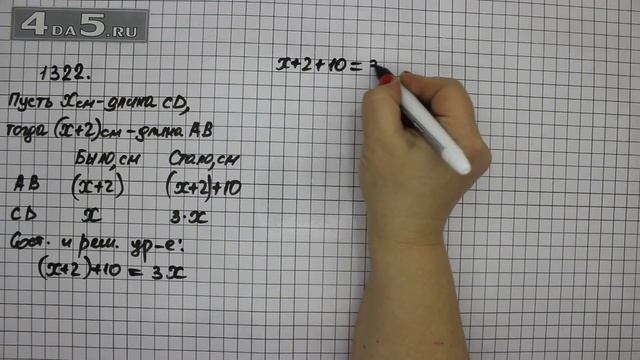 4DA5.RU
1322.
Пусть x см - длина CD,
тогда (x+2) см - длина AB
Было, см Стало, см
AB (x+2) (x+2)+10
CD x 3·x
Сост. и реш. ур-е:
(x+2)+10 = 3x
x+2+10 =